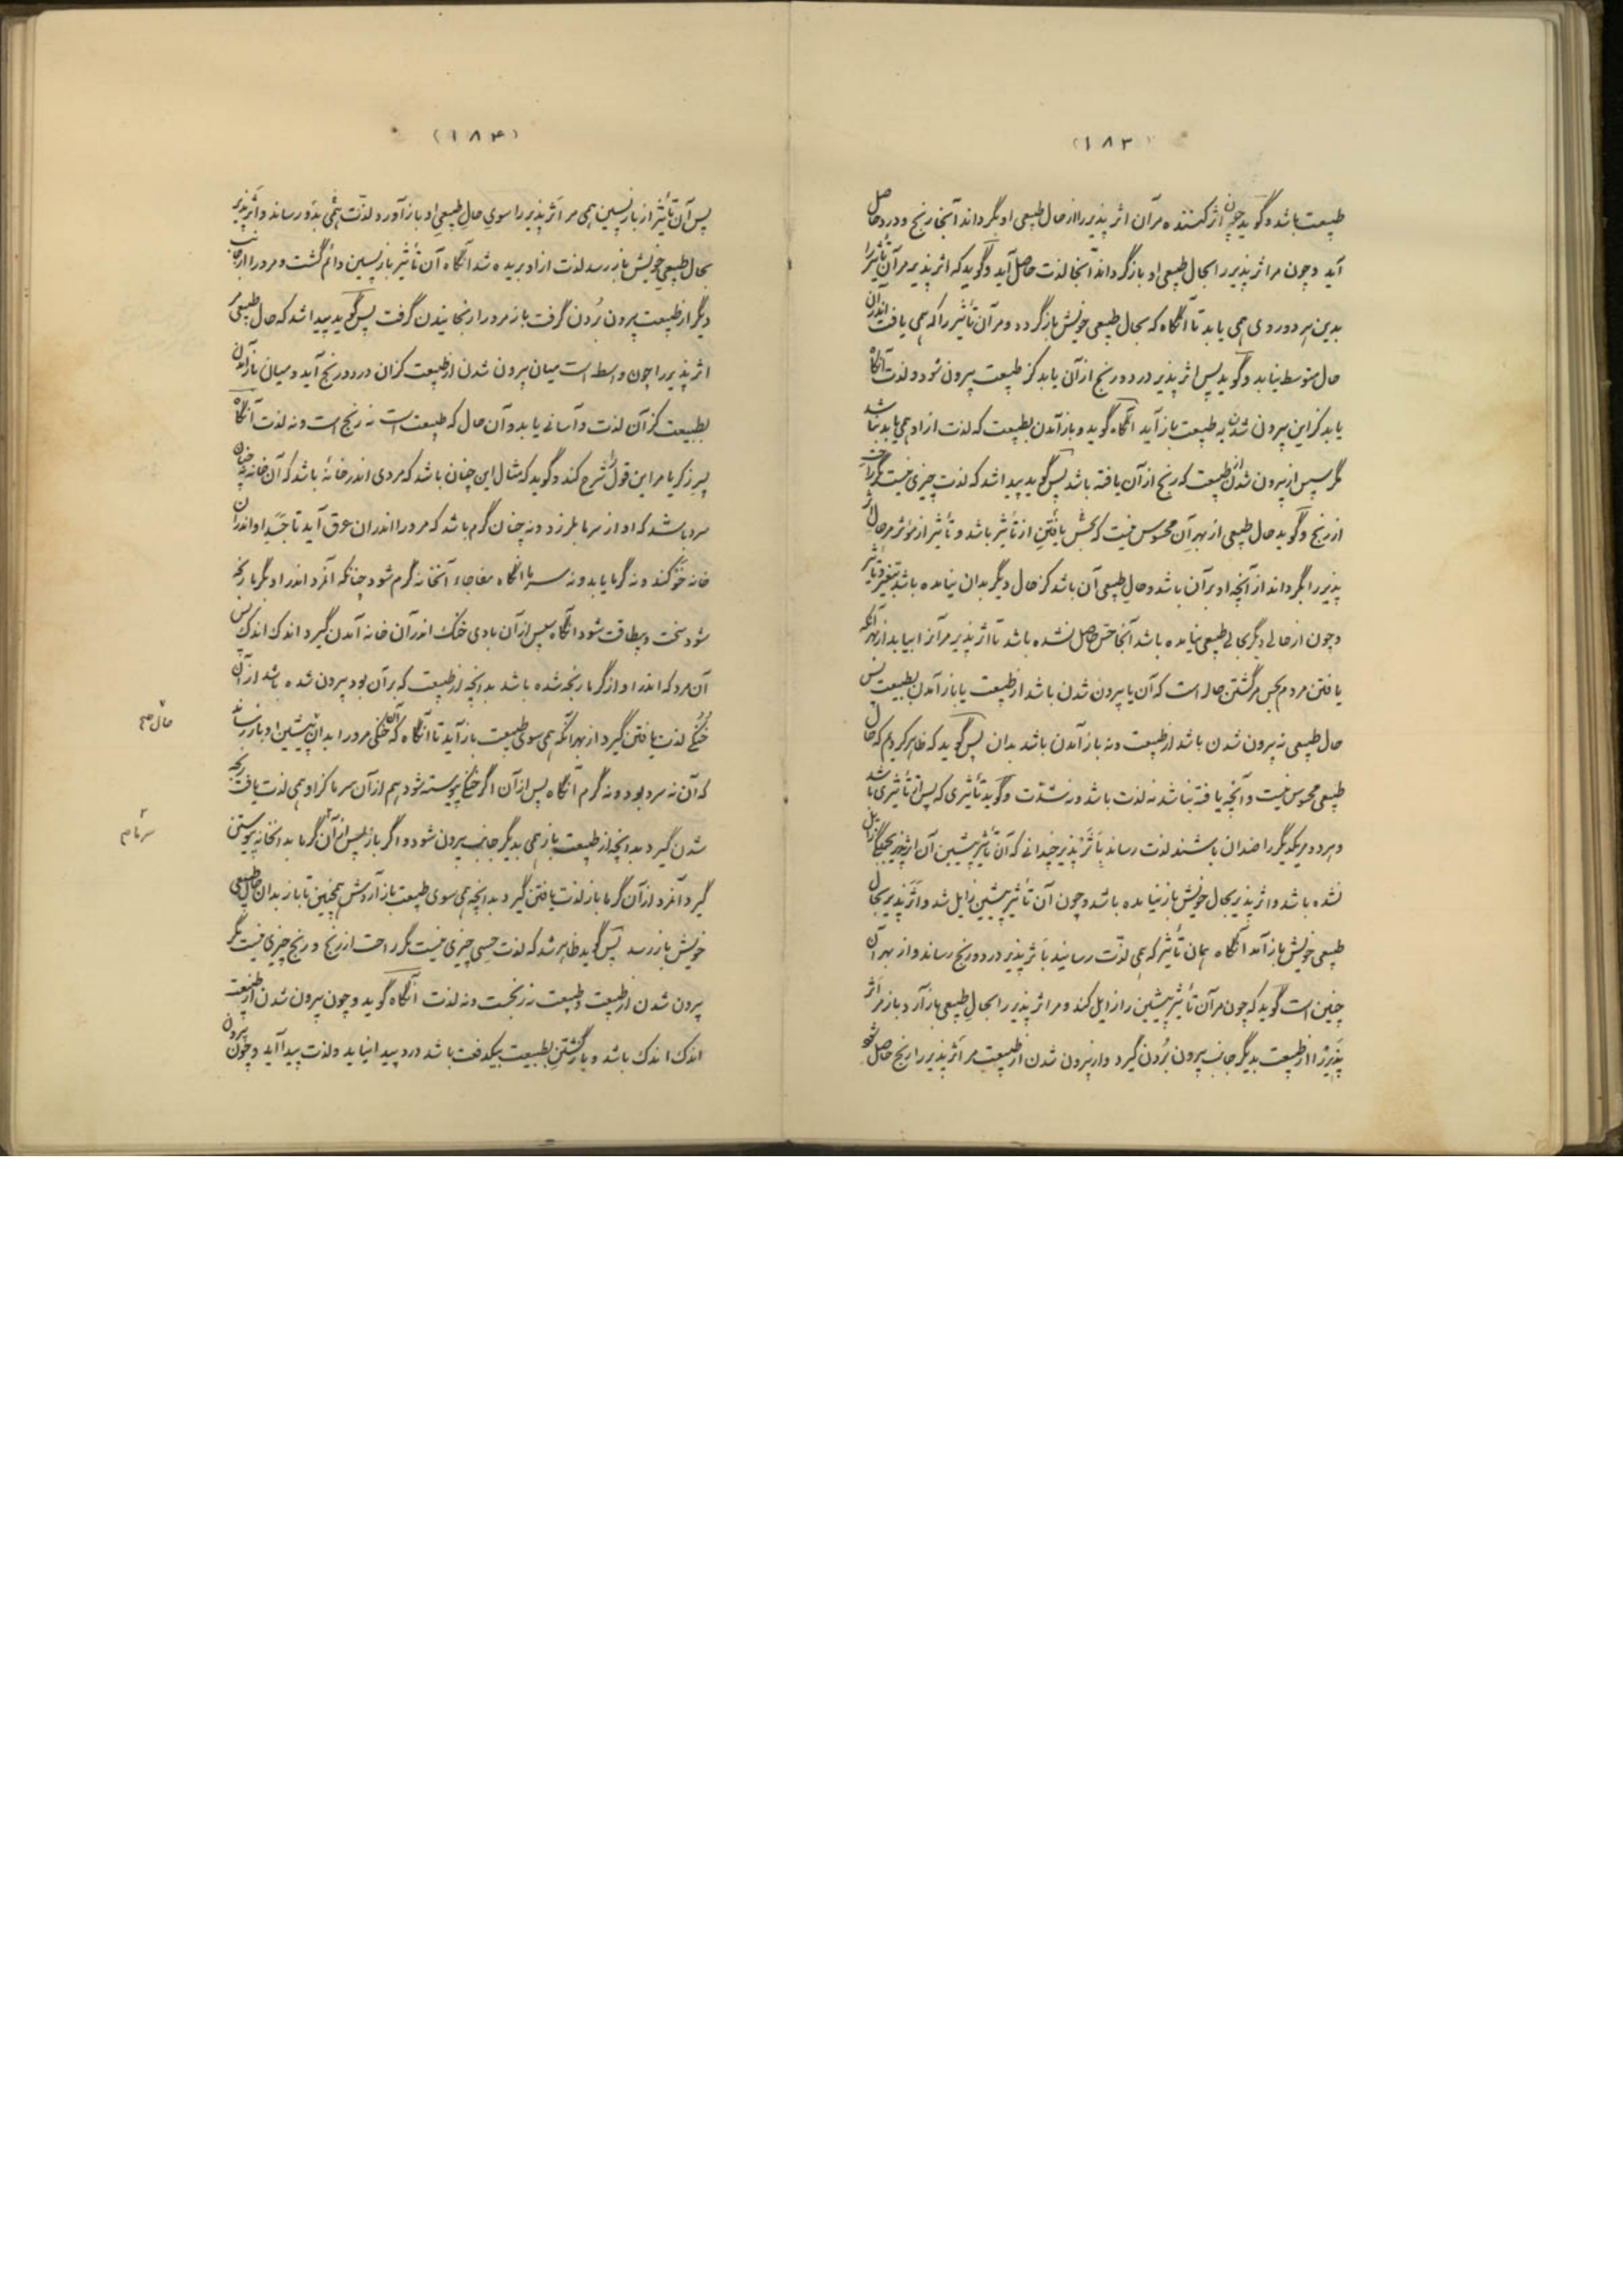 (۱۸۳)
طبیعت باشد و گوید چون اثر کننده مر آن اثر پذیر را از حال طبیعی او بگرداند آنجا رنج و درد حاصل
آید و چون مر اثر پذیر را بحال طبیعی او باز گرداند آنجا لذت حاصل آید و گوید که اثر پذیر مر آن تأثیر را
بدین هر دو روی همی یابد تا آنگاه که بحال طبیعی خویش باز گردد و مر آن تأثیر را که همی یافت اندران
حال متوسط نیابد و گوید پس اثر پذیر درد و رنج از آن یابد کز طبیعت بیرون شود و لذت آنگاه
یابد کز این بیرون شدن به طبیعت باز آید آنگاه گوید و باز آمدن بطبیعت که لذت از او همی یابد نباشد
مگر سپس از بیرون شدن از طبیعت که رنج از آن یافته باشد پس گوید پیدا شد که لذت چیزی نیست مگر راحت
از رنج و گوید حال طبیعی از بهر آن محسوس نیست که بحسّ یافتن از تأثیر باشد و تأثیر از مؤثر مر حال اثر
پذیر را بگرداند از آنچه او بر آن باشد و حال طبیعی آن باشد کز حال دیگر بدان نیامده باشد بتغیر و تأثیر
و چون از حالی دیگر بحالی طبیعی نیامده باشد آنجا حس حاصل نشده باشد تا اثر پذیر مر آنرا بیابد از بهر آنکه
یافتن مردم بحس مر گشتن حالست که آن یا بیرون شدن باشد از طبیعت یا باز آمدن بطبیعت پس
حال طبیعی نه بیرون شدن باشد از طبیعت و نه باز آمدن باشد بدان پس گوید که ظاهر کردیم که حال
طبیعی محسوس نیست و آنچه یافته نباشد نه لذت باشد و نه شدّت و گوید تأثیری که پس از تأثیری باشد
و هر دو مر یکدیگر را ضدان باشند لذت رساند باثر پذیر چندانی که آن تأثیر پیشین از آن اثر پذیر بجملگی زایل
نشده باشد و اثر پذیر بحال خویش باز نیامده باشد و چون آن تأثیر پیشین زایل شد و اثر پذیر بحال
طبیعی خویش باز آمد آنگاه همان تأثیر که همی لذّت رسانید باثر پذیر درد و رنج رساند و از بهر آن
چنین است گوید که چون مر آن تأثیر پیشین را زایل کند و مر اثر پذیر را بحال طبیعی باز آرد باز مر اثر
پذیر را از طبیعت بدیگر جانب بیرون بردن گیرد و از بیرون شدن از طبیعت مر اثر پذیر را رنج حاصل شود
(۱۸۴)
پس آن تأثیر از باز پسین همی مر اثر پذیر را سوی حال طبیعی او باز آورد و لذّت همی بدو رساند و اثر پذیر
بحال طبیعی خویش باز رسد لذت از او بریده شد آنگاه آن تأثیر باز پسین دائم گشت و مر او را از جانب
دیگر از طبیعت بیرون بردن گرفت باز مر او را رنجانیدن گرفت پس گوید پیدا شد که حال طبیعی مر
اثر پذیر را چون واسطه است میان بیرون شدن از طبیعت کزان درد و رنج آید و میان باز آمدن
بطبیعت کز آن لذت و آسانی یابد و آن حال که طبیعت است نه رنج است و نه لذت آنگاه
پسر زکریا مر این قول را شرح کند و گوید که مثال این چنان باشد که مردی اندر خانهٔ باشد که آن خانه نه چنان
سرد باشد که او از سرما بلرزد و نه چنان گرم باشد که مر او را اندران عرق آید تا جسد او اندران
خانه خو کند و نه گرما یابد و نه سرما آنگاه مفاجاء آنخانه گرم شود چنانکه آنمرد اندر او بگرما رنجه
شود سخت و بیطاقت شود آنگاه سپس از آن بادی خنک اندر آن خانه آمدن گیرد اندک اندک پس
آن مرد که اندر او از گرما رنجه شده باشد بدانچه از طبیعت که بر آن بود بیرون شده باشد از آن
خنکی لذت یافتن گیرد از بهر آنکه همی سوی طبیعت باز آید تا آنگاه که آن خنکی مر او را بدان پیشین او باز رساند
حال صح
که آن نه سرد بود و نه گرم آنگاه پس از آن اگر خنکی پیوسته شود هم از آن سرما کز او همی لذت یافت رنجه
شدن گیرد بدانچه از طبیعت باز همی بدیگر جانب بیرون شود و اگر باز پس از آن گرما بدانخانه پیوستن
سرما م
گیرد آنمرد از آن گرما باز لذت یافتن گیرد بدانچه همی سوی طبیعت باز آردش همچنین تا باز بدان حال طبیعی
خویش باز رسد پس گوید ظاهر شد که لذت حسی چیزی نیست مگر راحت از رنج و رنج چیزی نیست مگر
بیرون شدن از طبیعت و طبیعت نه رنجست و نه لذت آنگاه گوید و چون بیرون شدن از طبیعت
اندک اندک باشد و باز گشتن بطبیعت بیکدفعت باشد درد پیدا نیاید و لذت پیدا آید و چون بیرون